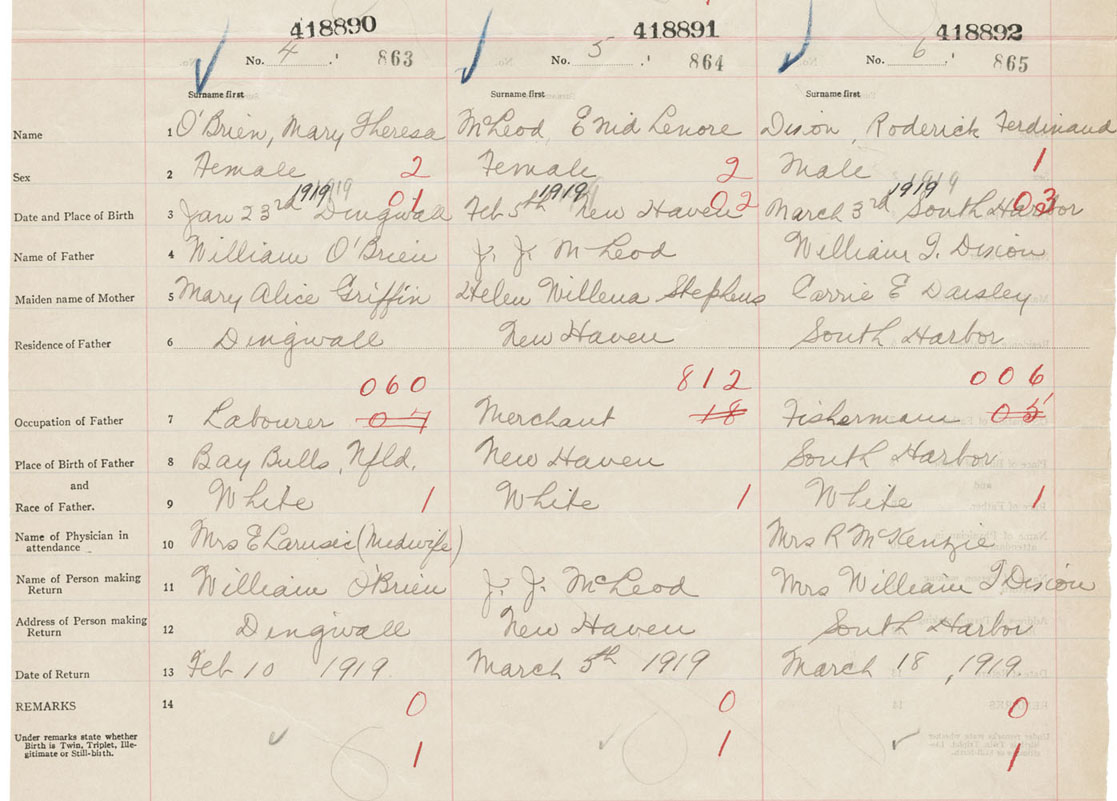 418890 418891 418892
No. 4 863 No. 5 864 No. 6 865
Surname first Surname first Surname first
Name 1 O'Brien, Mary Theresa McLeod, Enid Lenore Dixon, Roderick Ferdinand
Sex 2 Female 2 Female 2 Male 1
1919 1919 1919
Date and Place of Birth 3 Jan 23rd Dingwall 01 Feb 5th New Haven 02 March 3rd South Harbor 03
Name of Father 4 William O'Brien J. J. McLeod William T. Dixon
Maiden name of Mother 5 Mary Alice Griffin Helen Willena Stephens Carrie E Daisley
Residence of Father 6 Dingwall New Haven South Harbor
060 812 006
Occupation of Father 7 Labourer 07 Merchant 18 Fisherman 05
Place of Birth of Father 8 Bay Bulls, Nfld. New Haven South Harbor
and
Race of Father. 9 White 1 White 1 White 1
Name of Physician in
attendance 10 Mrs E (Midwife) Mrs R McKenzie
Name of Person making
Return 11 William O'Brien J. J. McLeod Mrs William T Dixon
Address of Person making
Return 12 Dingwall New Haven South Harbor
Date of Return 13 Feb 10 1919 March 5th 1919 March 18, 1919
REMARKS 14 0 0 0
Under remarks state whether
Birth is Twin, Triplet, Ille-
gitimate or Still-birth. 1 1 1